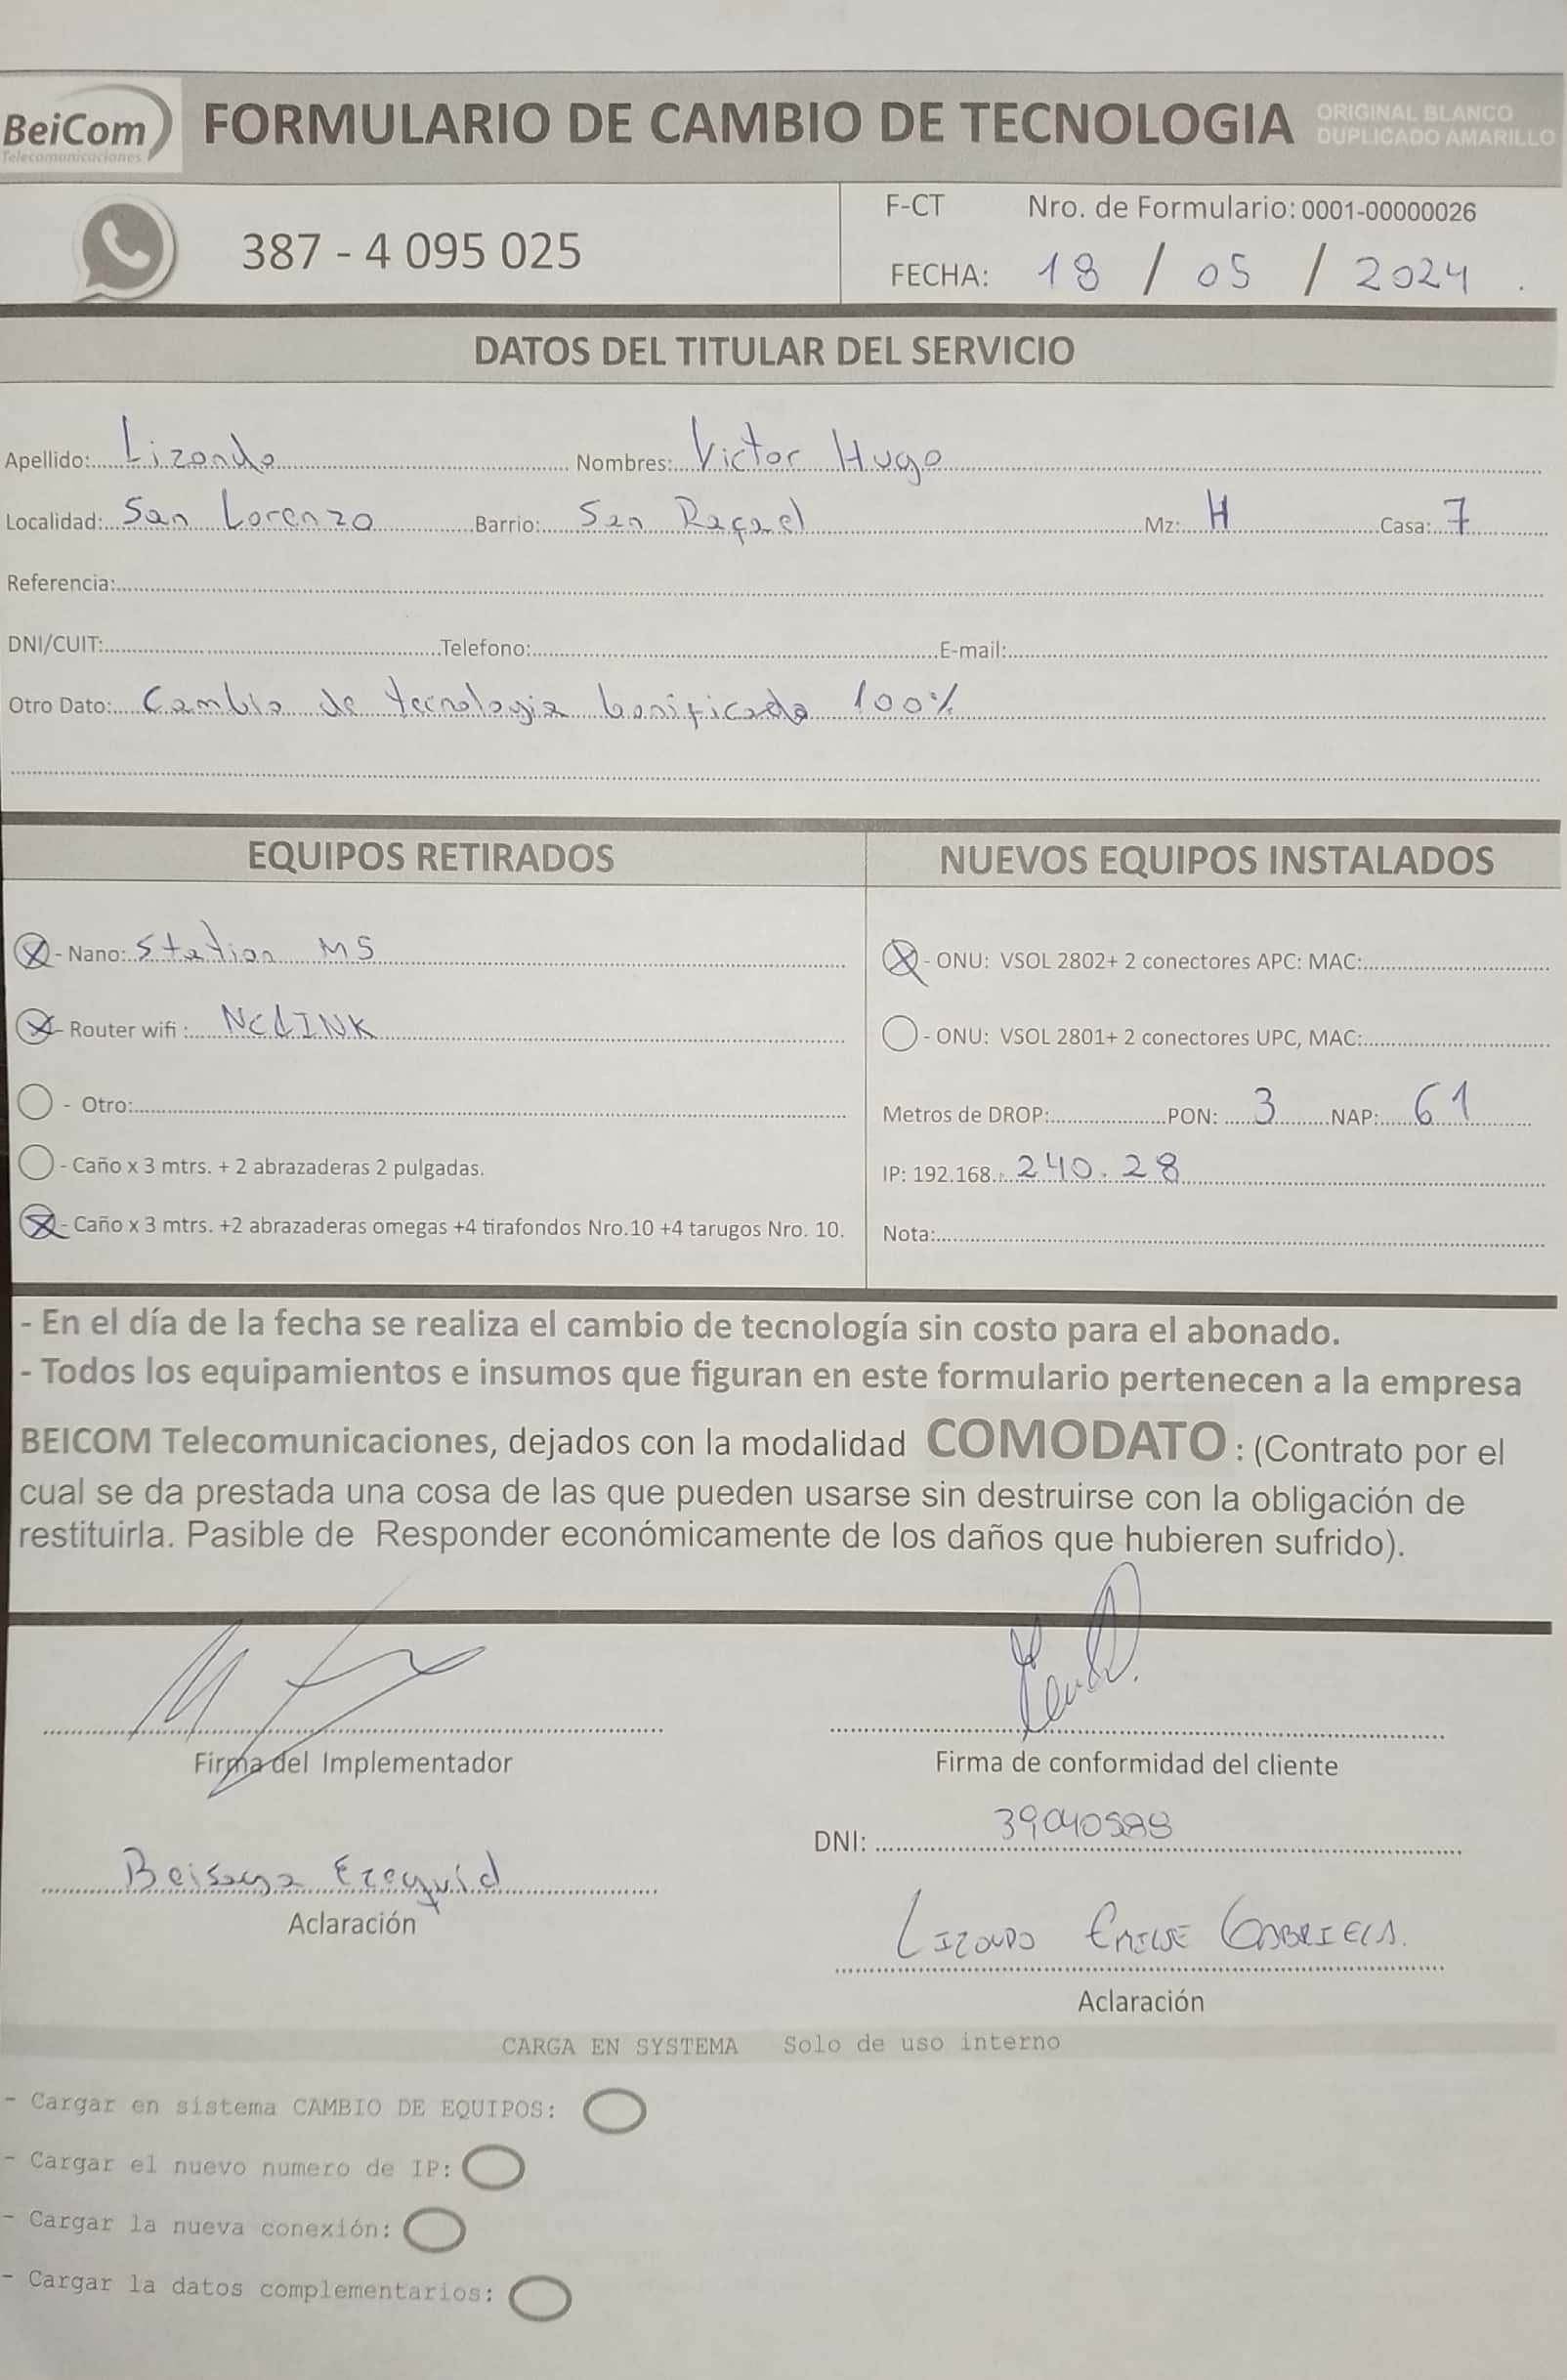 BeiCom
Telecomunicaciones
FORMULARIO DE CAMBIO DE TECNOLOGIA
ORIGINAL BLANCO
DUPLICADO AMARILLO
387 - 4 095 025
F-CT Nro. de Formulario: 0001-00000026
FECHA: 18 / 05 / 2024
DATOS DEL TITULAR DEL SERVICIO
Apellido: Lizondo Nombres: Victor Hugo
Localidad: San Lorenzo Barrio: San Rafael Mz: H Casa: 7
Referencia:
DNI/CUIT: Telefono: E-mail:
Otro Dato: Cambio de tecnologia bonificado 100%
EQUIPOS RETIRADOS
- Nano: Station M5
- Router wifi :
- Otro:
- Caño x 3 mtrs. + 2 abrazaderas 2 pulgadas.
- Caño x 3 mtrs. +2 abrazaderas omegas +4 tirafondos Nro.10 +4 tarugos Nro. 10.
NUEVOS EQUIPOS INSTALADOS
- ONU: VSOL 2802+ 2 conectores APC: MAC:
- ONU: VSOL 2801+ 2 conectores UPC, MAC:
Metros de DROP: PON: 3 NAP: 61
IP: 192.168. 240.28
Nota:
- En el día de la fecha se realiza el cambio de tecnología sin costo para el abonado.
- Todos los equipamientos e insumos que figuran en este formulario pertenecen a la empresa
BEICOM Telecomunicaciones, dejados con la modalidad COMODATO : (Contrato por el
cual se da prestada una cosa de las que pueden usarse sin destruirse con la obligación de
restituirla. Pasible de Responder económicamente de los daños que hubieren sufrido).
Firma del Implementador
Ezequiel
Aclaración
Firma de conformidad del cliente
DNI:
Lizondo Emilse Gabriela.
Aclaración
CARGA EN SYSTEMA Solo de uso interno
- Cargar en sistema CAMBIO DE EQUIPOS:
- Cargar el nuevo numero de IP:
- Cargar la nueva conexión:
- Cargar la datos complementarios: